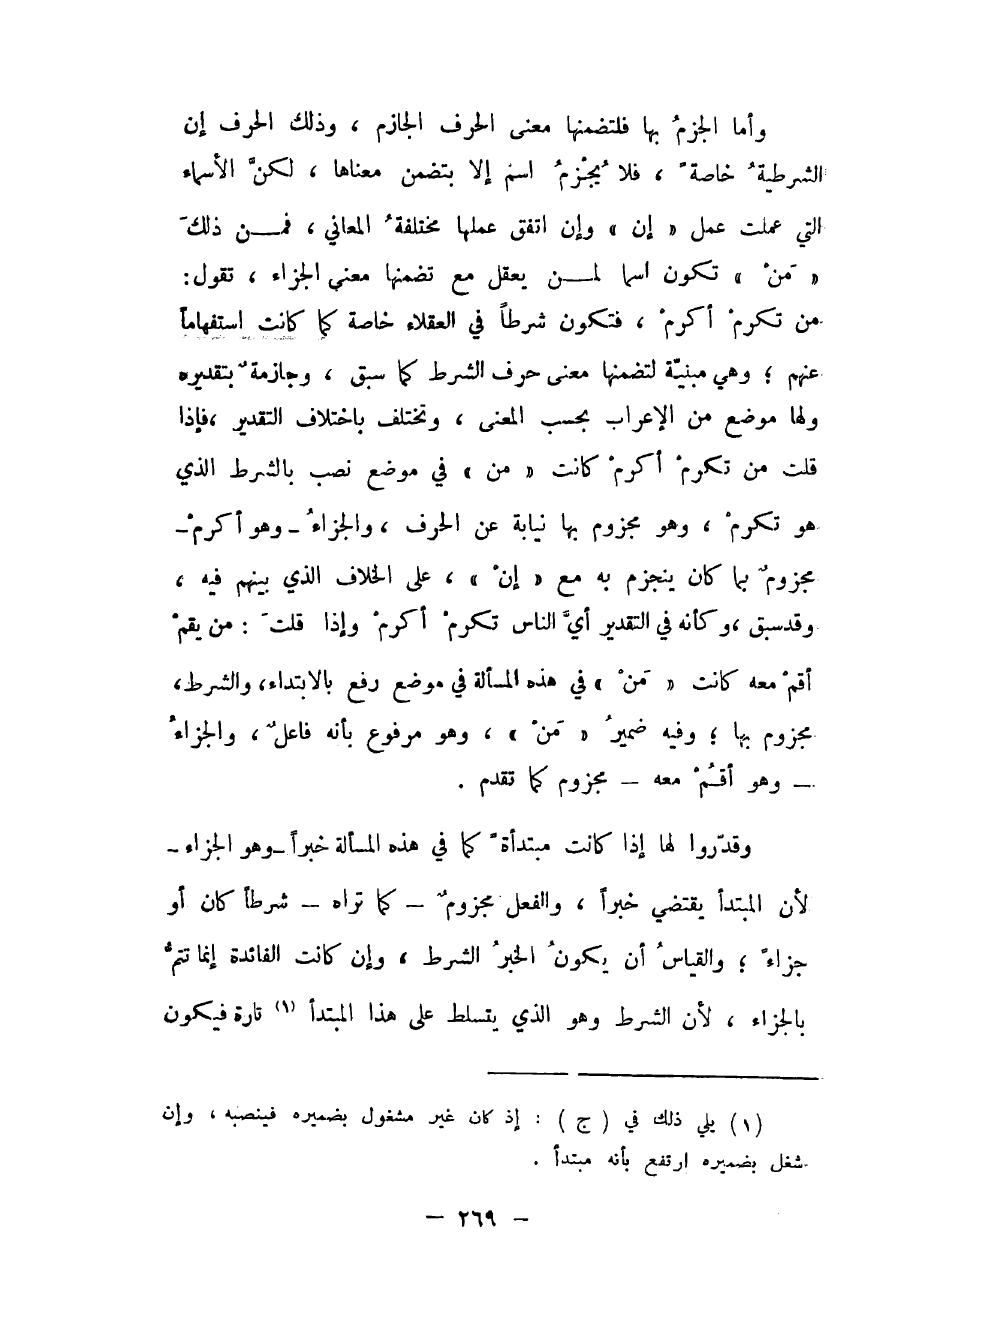 وأما الجزمُ بها فلتضمنها معنى الحرف الجازم ، وذلك الحرف إن
الشرطيةُ خاصةً ، فلا يُجْزمُ اسمٌ إلا بتضمن معناها ، لكنَّ الأسماء
التي عملت عمل « إن » وإن اتفق عملها مختلفةُ المعاني ، فمن ذلكَ
« مَنْ » تكون اسما لمن يعقل مع تضمنها معنى الجزاء ، تقول:
من تكرمْ أكرمْ ، فتكون شرطاً في العقلاء خاصة كما كانت استفهاماً
عنهم ؛ وهي مبنيّة لتضمنها معنى حرف الشرط كما سبق ، وجازمةٌ بتقديره
ولها موضع من الإعراب بحسب المعنى ، وتختلف باختلاف التقدير ،فإذا
قلت من تكرمْ أكرمْ كانت « من » في موضع نصب بالشرط الذي
هو تكرمْ ، وهو مجزوم بها نيابة عن الحرف ، والجزاءُ ـ وهو أكرمْ ـ
مجزومٌ بما كان ينجزم به مع « إنْ » ، على الخلاف الذي بينهم فيه ،
وقدسبق ،وكأنه في التقدير أيَّ الناس تكرمْ أكرمْ وإذا قلتَ : من يقمْ
أقمْ معه كانت « مَنْ » في هذه المسألة في موضع رفع بالابتداء، والشرط،
مجزوم بها ؛ وفيه ضميرُ « مَنْ » ، وهو مرفوع بأنه فاعلٌ ، والجزاءُ
— وهو أقُمْ معه — مجزوم كما تقدم .
وقدّروا لها إذا كانت مبتدأةً كما في هذه المسألة خبراً ـ وهو الجزاء ـ
لأن المبتدأ يقتضي خبراً ، والفعل مجزومٌ — كما تراه — شرطاً كان أو
جزاءً ؛ والقياسُ أن يكونُ الخبرُ الشرط ، وإن كانت الفائدة إنما تتمُّ
بالجزاء ، لأن الشرط وهو الذي يتسلط على هذا المبتدأ (١) تارة فيكون
(١) يلي ذلك في ( ج ) : إذ كان غير مشغول بضميره فينصبه ، وإن
شغل بضميره ارتفع بأنه مبتدأ .
— ٢٦٩ —